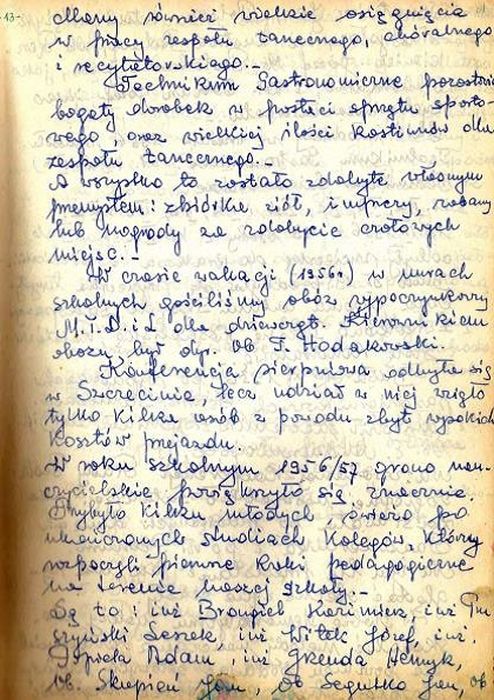 -13-
również wielkie osiągnięcia
w pracy zespołu tanecznego, chóralnego
i recytatorskiego.-
Technikum Gastronomiczne pozostawi
bogaty dorobek w postaci sprzętu sporto-
wego, oraz wielkiej ilości kostiumów dla
zespołu tanecznego.-
A wszystko to zostało zdobyte własnym
przemysłem: zbiórka ziół, imprezy, zabawy
lub nagrody za zdobycie czołowych
miejsc.-
W czasie wakacji (1956r) w murach
szkolnych gościliśmy obóz wypoczynkowy
dla dziewcząt. Kierownikiem
obozu, był dyr. ob F. Hodakowski.
Konferencja sierpniowa odbyła się
w Szczecinie, lecz udział w niej wzięło
tylko kilka osób z powodu zbyt wysokich
kosztów przejazdu.
W roku szkolnym 1956/57 grono nau-
czycielskie powiększyło się znacznie.
Przybyło kilku młodych, świeżo po
ukończonych studiach kolegów, którzy
rozpoczęli pierwsze kroki pedagogiczne
na terenie naszej szkoły.-
Są to: inż Kazimierz, inż
Leszek, inż Witek Józef, inż.
Adam, inż Grenda Henryk,
ob. Skupień Jan, ob Segutko Jan ob